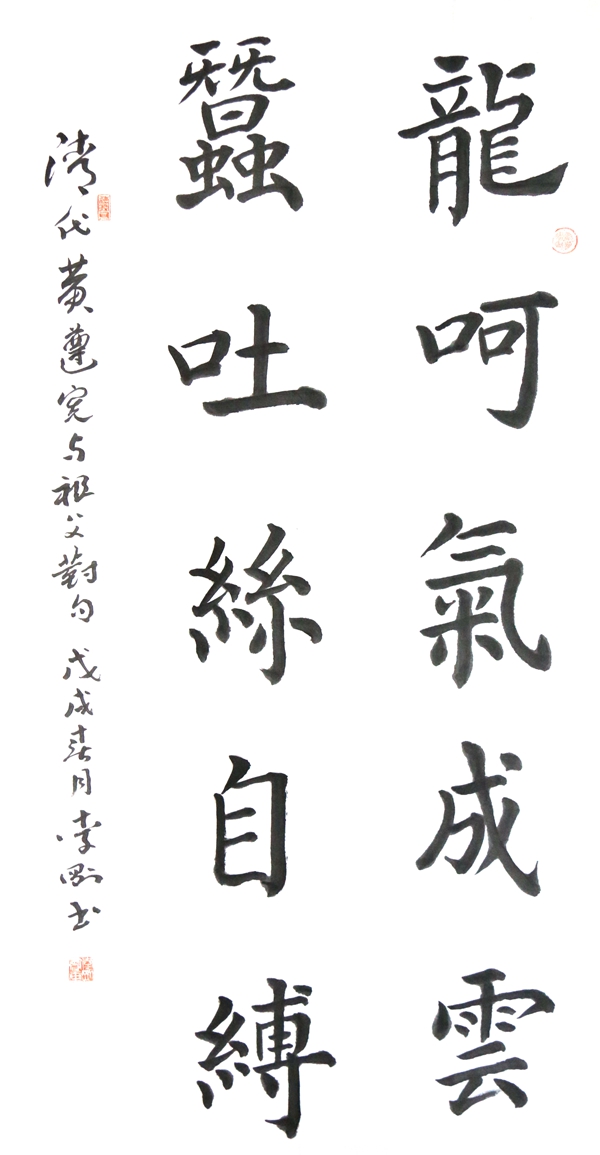 龍呵氣成雲
蠶吐絲自縛
清代黄遵宪与祖父對句 戊戌春月 李剛书